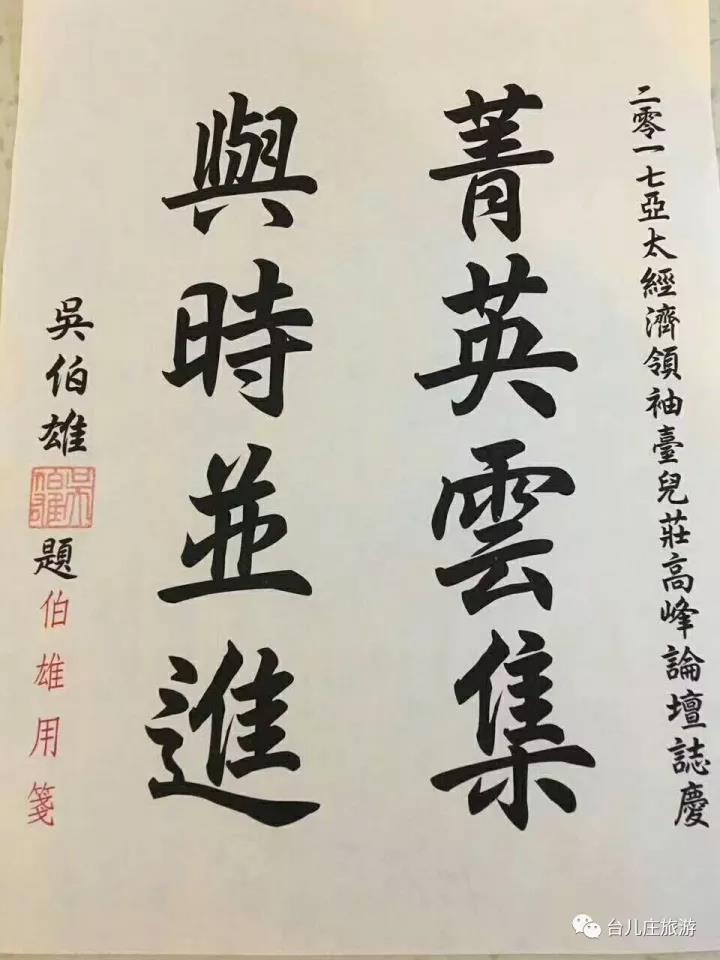 二零一七亞太經濟領袖臺兒莊高峰論壇誌慶
菁英雲集
與時並進
吳伯雄
吳伯雄
題
伯雄用箋
台儿庄旅游